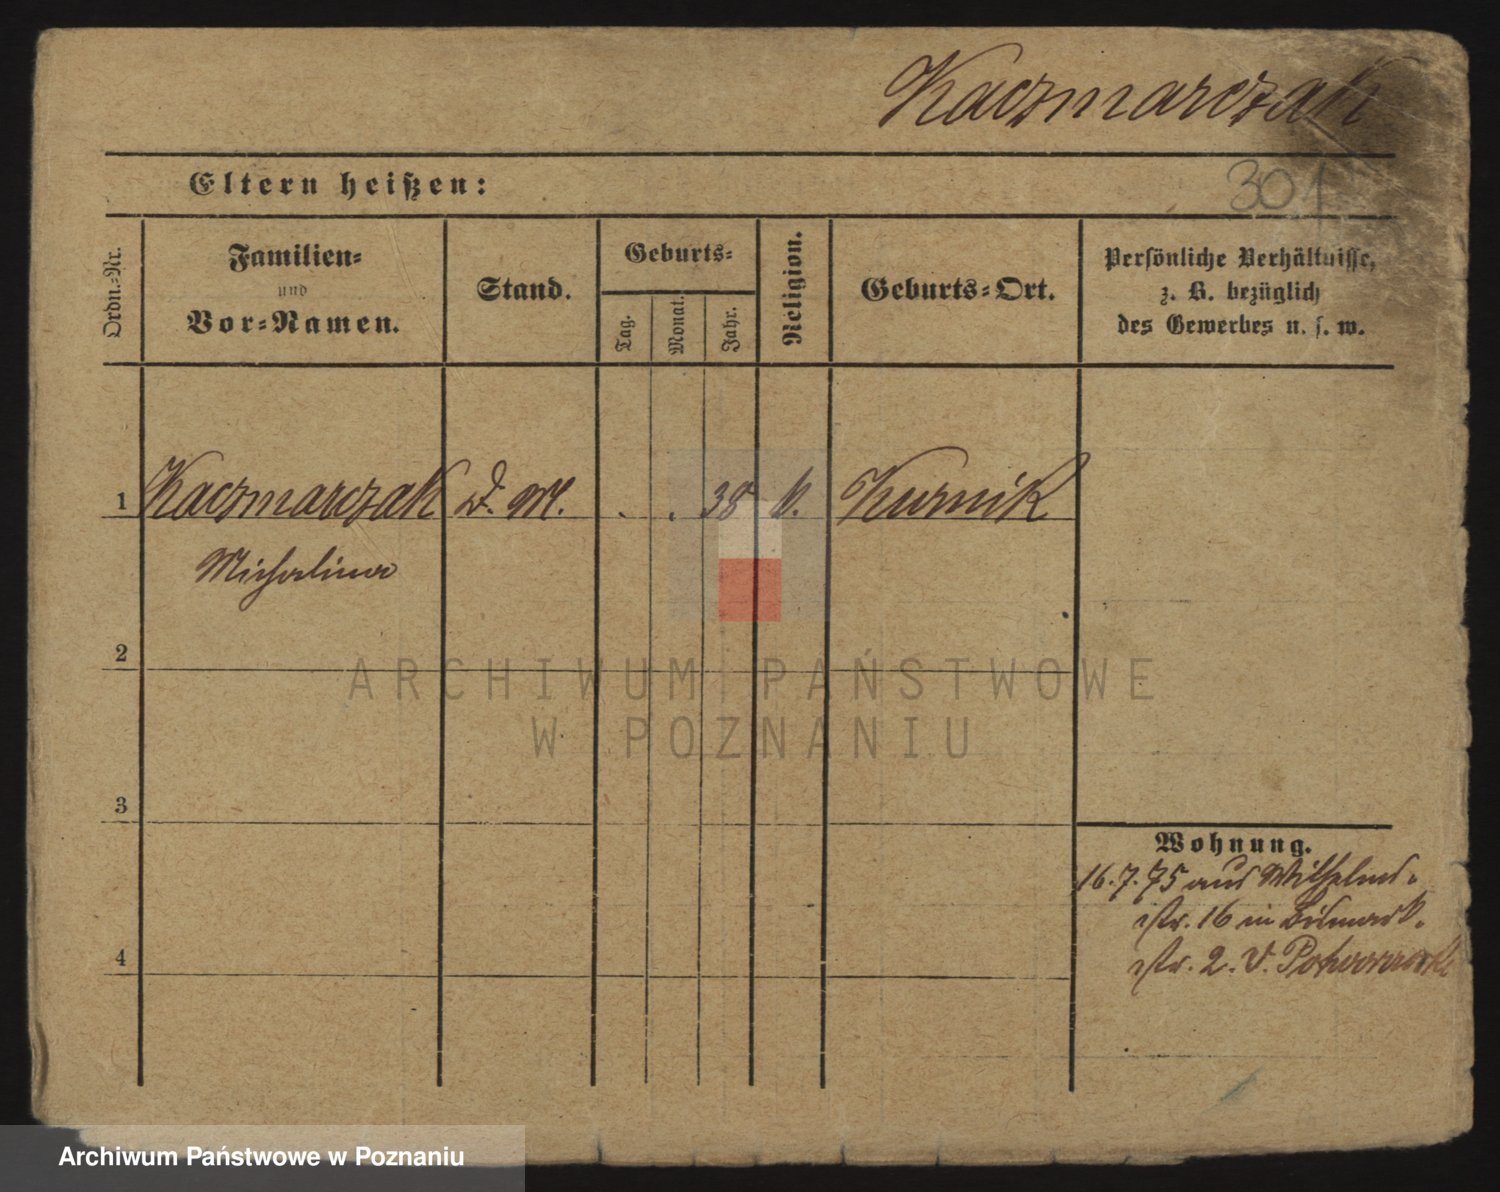 Kaczmarczak
301
Eltern heißen:
Ordn.-Nr.
Familien-
und
Vor-Namen.
Stand.
Geburts-
Tag.
Monat.
Jahr.
Religion.
Geburts-Ort.
Persönliche Verhältnisse,
z. B. bezüglich
des Gewerbes u. s. w.
1 Kaczmarczak D. M. . . 38 k. Kurnik
Michalina
2
ARCHIWUM PAŃSTWOWE
W POZNANIU
3
Wohnung.
16.7.75 aus Wilhelms-
str. 16 in Bismark-
str. 2. v.
4
Archiwum Państwowe w Poznaniu